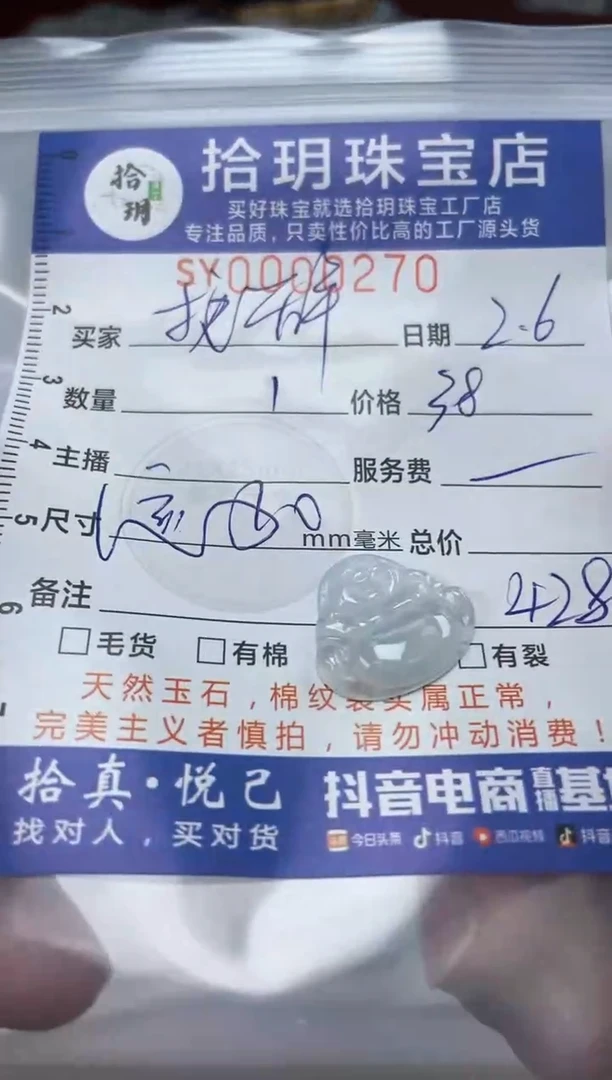 拾玥
拾玥珠宝店
买好珠宝就选拾玥珠宝工厂店
专注品质，只卖性价比高的工厂源头货
SY0000270
买家 日期 2.6
数量 1 价格 38
主播 服务费
尺寸 mm毫米 总价
备注 428
毛货 有棉 有裂
天然玉石，棉纹裂实属正常，
完美主义者慎拍，请勿冲动消费！
拾真·悦己 抖音电商直播基
找对人，买对货 今日头条 抖音 西瓜视频 抖音
0 2 3 4 5 6